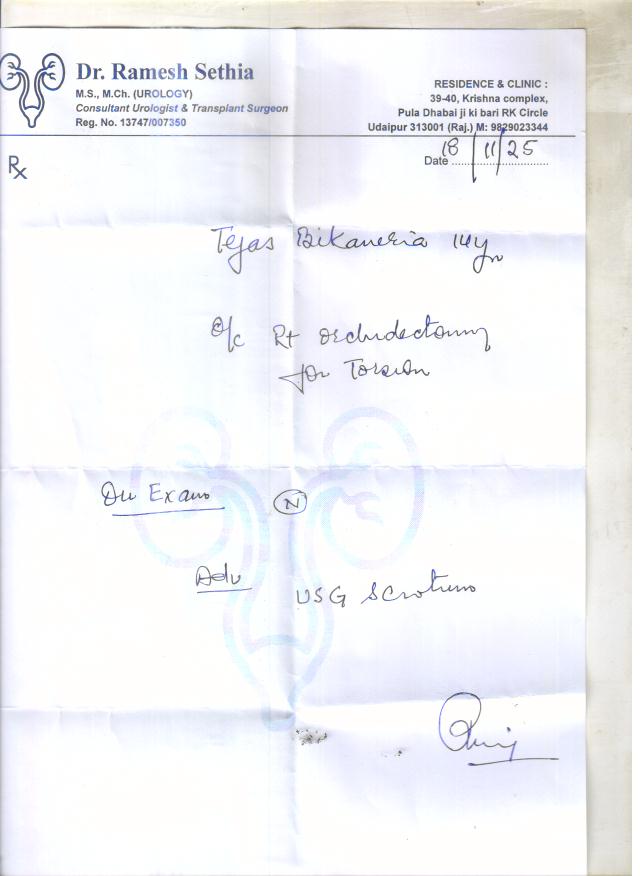 Dr. Ramesh Sethia
M.S., M.Ch. (UROLOGY)
Consultant Urologist & Transplant Surgeon
Reg. No. 13747/007350
RESIDENCE & CLINIC :
39-40, Krishna complex,
Pula Dhabai ji ki bari RK Circle
Udaipur 313001 (Raj.) M: 9829023344
Date 18/11/25
Rx
Tejas Bikaneria 14yr
Rt orchidectomy
for Torsion
On Exam N
Adv USG Scrotum